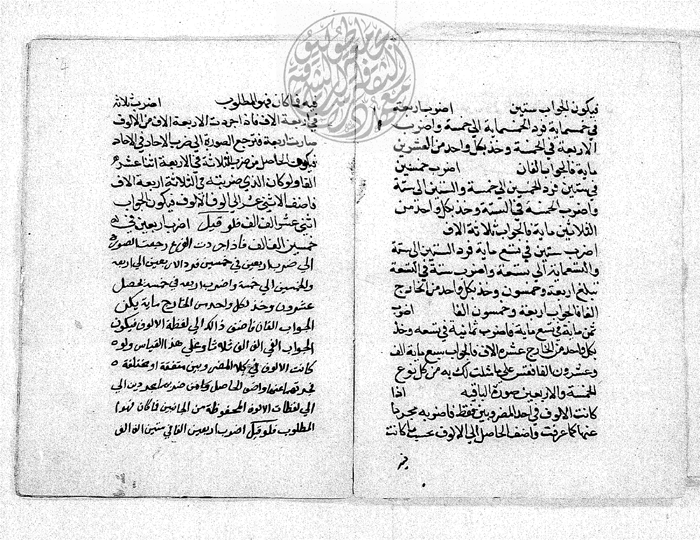 فيكون الجواب ستين اضرب اربعة
في خمسماية فرد الخمسماية الى خمسة واضرب
الاربعة في الخمسة وخذ بكل واحد من العشرين
ماية فالجواب الفان اضرب خمسين
في ستين فرد الخمسين الى خمسة والستين الى ستة
واضرب الخمسة في الستة وخذ بكل واحد من
الثلاثين ماية فالجواب ثلاثة الاف
اضرب ستين في تسع ماية فرد الستين الى ستة
والتسعماية الى تسعة واضرب ستة في التسعة
تبلغ اربعة وخمسون وخذ بكل واحد من الخارج
الفا فالجواب اربعة وخمسون الفا اضرب
ثمن ماية في تسع ماية فاضرب ثمانية في تسعه وخذ
بكل واحد من الخارج عشرة الاف فالجواب سبع ماية الف
وعشرون الفا فقس على ما شئت لك به من كل نوع
الخمسة والاربعين صورة الباقيه اذا
كانت الالوف في احد المضروبين فقط فاضربه مجردا
عنها كما عرفت واضف الحاصل الى الالوف بحسب ما كانت
فيه
فيه فما كان فهو المطلوب اضرب ثلاثة
في اربعة الاف فاذا جردت الاربعة الاف من الالوف
صارت اربعة فترجع الصورة الى ضرب الاحاد في الاحاد
فيكون الحاصل من ضرب الثلاثة في الاربعة اثنا عشر
الفا ولو كان الذي ضربته في الثلاثة اربعة الاف
فاضف الاثنى عشر الى الوف الالوف فيكون الجواب
اثنى عشر الف الف فلو قيل اضرب اربعين في
خمسين الف الف فاذا جردت رجعت الصورة
الى ضرب اربعين في خمسين فرد الاربعين الى اربعه
والخمسين الى خمسة واضرب اربعه في خمسه يحصل
عشرون وخذ لكل واحد من الخارج ماية يكن
الجواب الفان فاضف ذالك الى لفظة الالوف فيكون
الجواب الفي الف الف ثلاثا وعلى هذا القياس ولو
كانت الالوف في كلا المضروبين متفقة او مختلفة
فجردهما عنها واضف الحاصل من ضربهما مجردين الى
الى لفظات الالوف المحفوظة من الجانبين فما كان فهو
المطلوب فلو قيل اضرب اربعين الفا في ستين الف الف